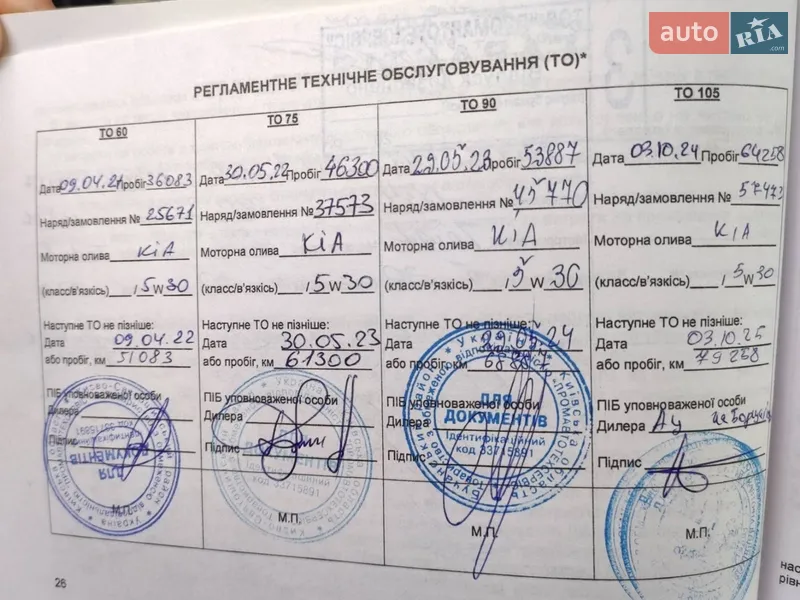 auto RIA .com
РЕГЛАМЕНТНЕ ТЕХНІЧНЕ ОБСЛУГОВУВАННЯ (ТО)*
ТО 60
Дата 09.04.21 Пробіг 36083
Наряд/замовлення № 25671
Моторна олива КІА
(класс/в'язкісь) / 5W30
Наступне ТО не пізніше:
Дата 09.04.22
або пробіг, км 51083
ПІБ уповноваженої особи
Дилера
Підпис
ДЛЯ ДОКУМЕНТІВ
М.П.
ТО 75
Дата 30.05.22 Пробіг 46300
Наряд/замовлення № 37573
Моторна олива КІА
(класс/в'язкісь) / 5W30
Наступне ТО не пізніше:
Дата 30.05.23
або пробіг, км 61300
ПІБ уповноваженої особи
Дилера
Підпис
код 33715891
М.П.
ТО 90
Дата 29.05.23 Пробіг 53887
Наряд/замовлення № 45770
Моторна олива КІА
(класс/в'язкісь) / 5W30
Наступне ТО не пізніше:
Дата 29.05.24
або пробіг, км 68887
ПІБ уповноваженої особи
Дилера
ДЛЯ
ДОКУМЕНТІВ
Ідентифікаційний
код 33715891
Підпис
М.П.
ТО 105
Дата 03.10.24 Пробіг 64258
Наряд/замовлення № 57473
Моторна олива КІА
(класс/в'язкісь) / 5W30
Наступне ТО не пізніше:
Дата 03.10.25
або пробіг, км 79258
ПІБ уповноваженої особи
Дилера
Підпис
М.П.
26
нас
рівн